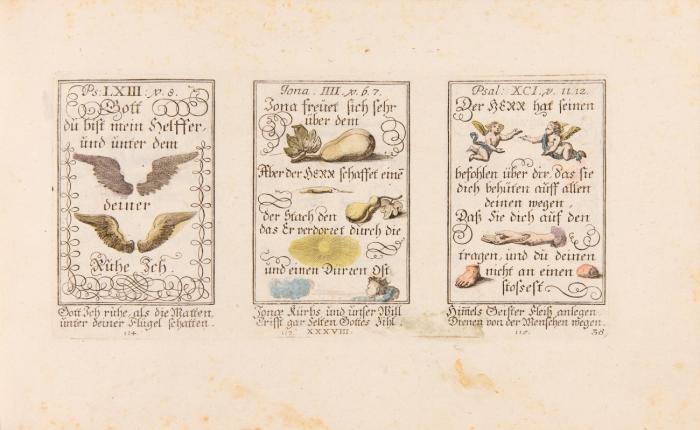 Ps: LXIII. v. 8.
Gott
du bist mein Helffer,
und unter dem
deiner
Ruhe Ich.
Gott Ich ruhe, als die Matten,
unter deiner Flügel schatten.
114.
Jona. IIII. v. 6. 7.
Jona freuet sich sehr
über dem
Aber der HERR schaffet einē
der Stach den
das Er verdorret durch die
und einen Dürren Ost
Jonæ Kürbs und unser Will
Trifft gar selten Gottes Zihl.
XXXVIII.
Psal: XCI. v. 11.12.
Der HERR hat seinen
befohlen über dir, das sie
dich behüten auff allen
deinen wegen,
Daß Sie dich auf den
tragen, und du deinen
nicht an einen
stossest.
Himels Geister Fleiß anlegen
Dienen von der Menschen wegen.
115.
38